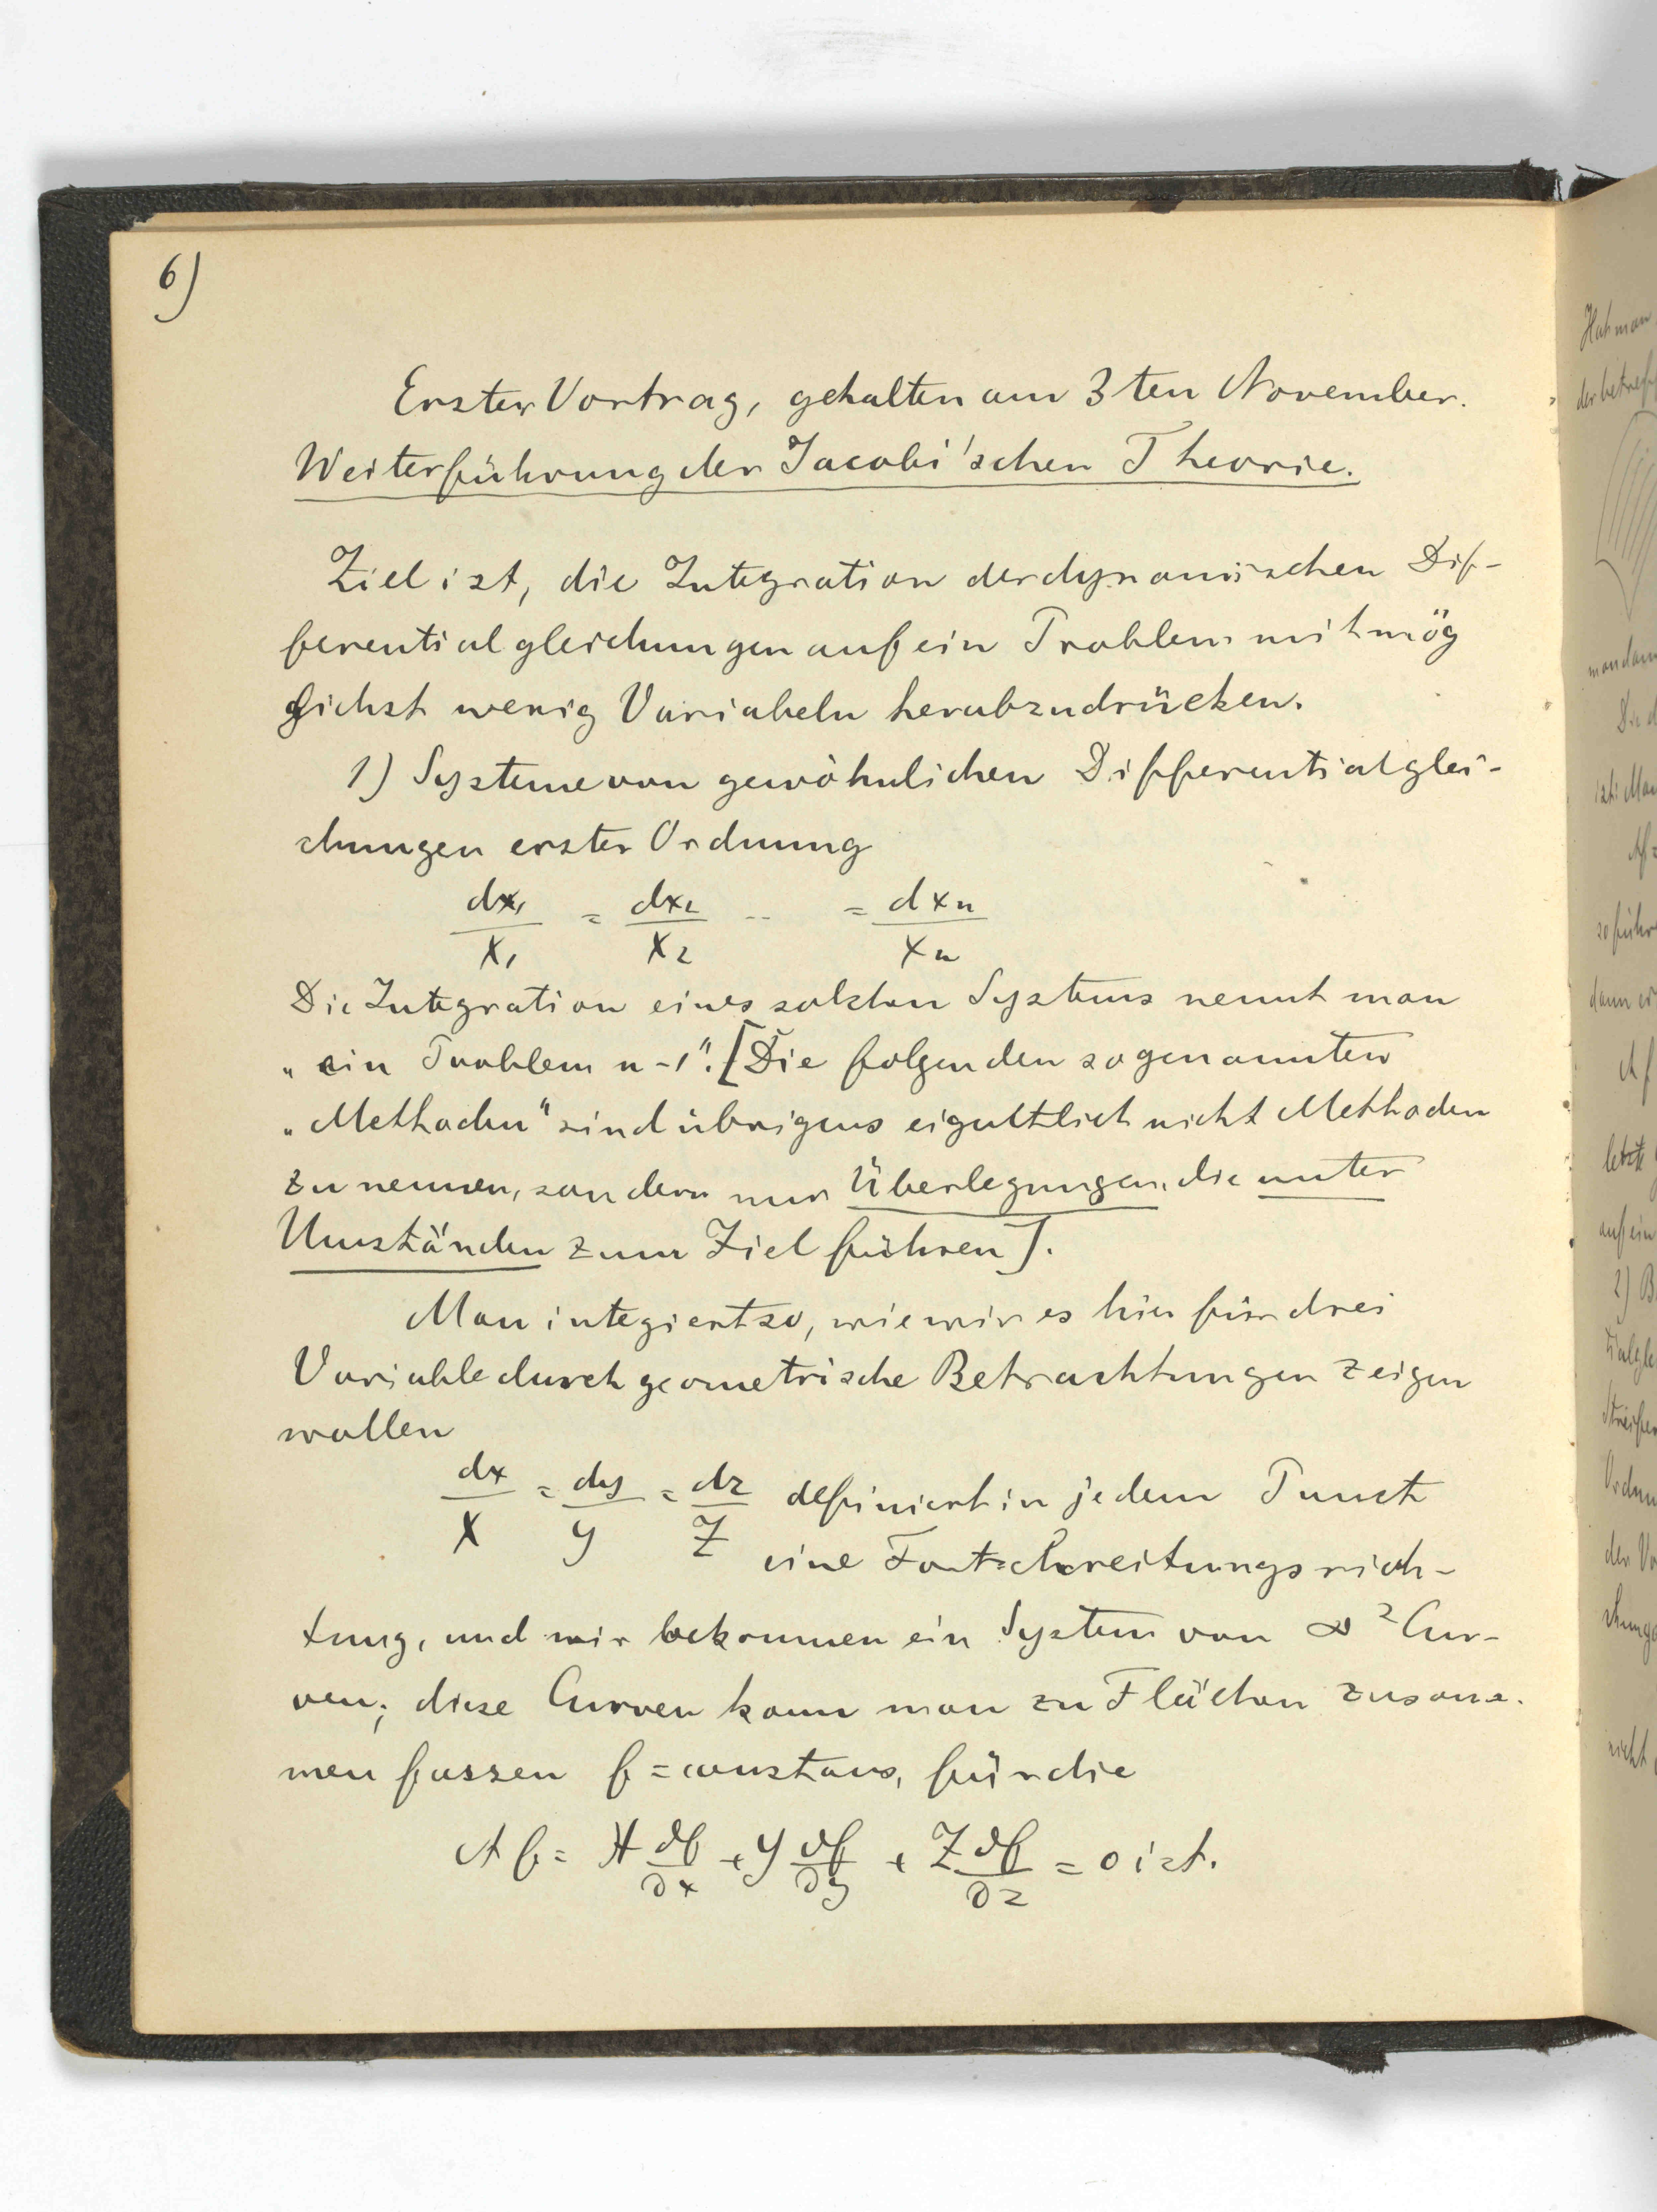 6)
Erster Vortrag, gehalten am 3ten November.
Weiterführung der Jacobi'schen Theorie.
Ziel ist, die Integration der dynamischen Dif-
ferentialgleichungen auf ein Problem mit mög
lichst wenig Variabeln herabzudrücken.
1) Systeme von gewöhnlichen Differentialglei-
chungen erster Ordnung
dx₁/X₁ = dx₂/X₂ -- = dxₙ/Xₙ
Die Integration eines solchen Systems nennt man
„ein Problem n-1". [Die folgenden sogenannten
„Methoden" sind übrigens eigentlich nicht Methoden
zu nennen, sondern nur Überlegungen, die unter
Umständen zum Ziel führen].
Man integiert so, wie wir es hier für drei
Variable durch geometrische Betrachtungen zeigen
wollen
dx/X = dy/Y = dz/Z definiert in jedem Punct
eine Fortschreitungsrich-
tung, und wir bekommen ein System von ∞² Cur-
ven; diese Curven kann man zu Flächen zusam-
men fassen f = constans, für die
Af = X ∂f/∂x + Y ∂f/∂y + Z ∂f/∂z = 0 ist.
Hat man